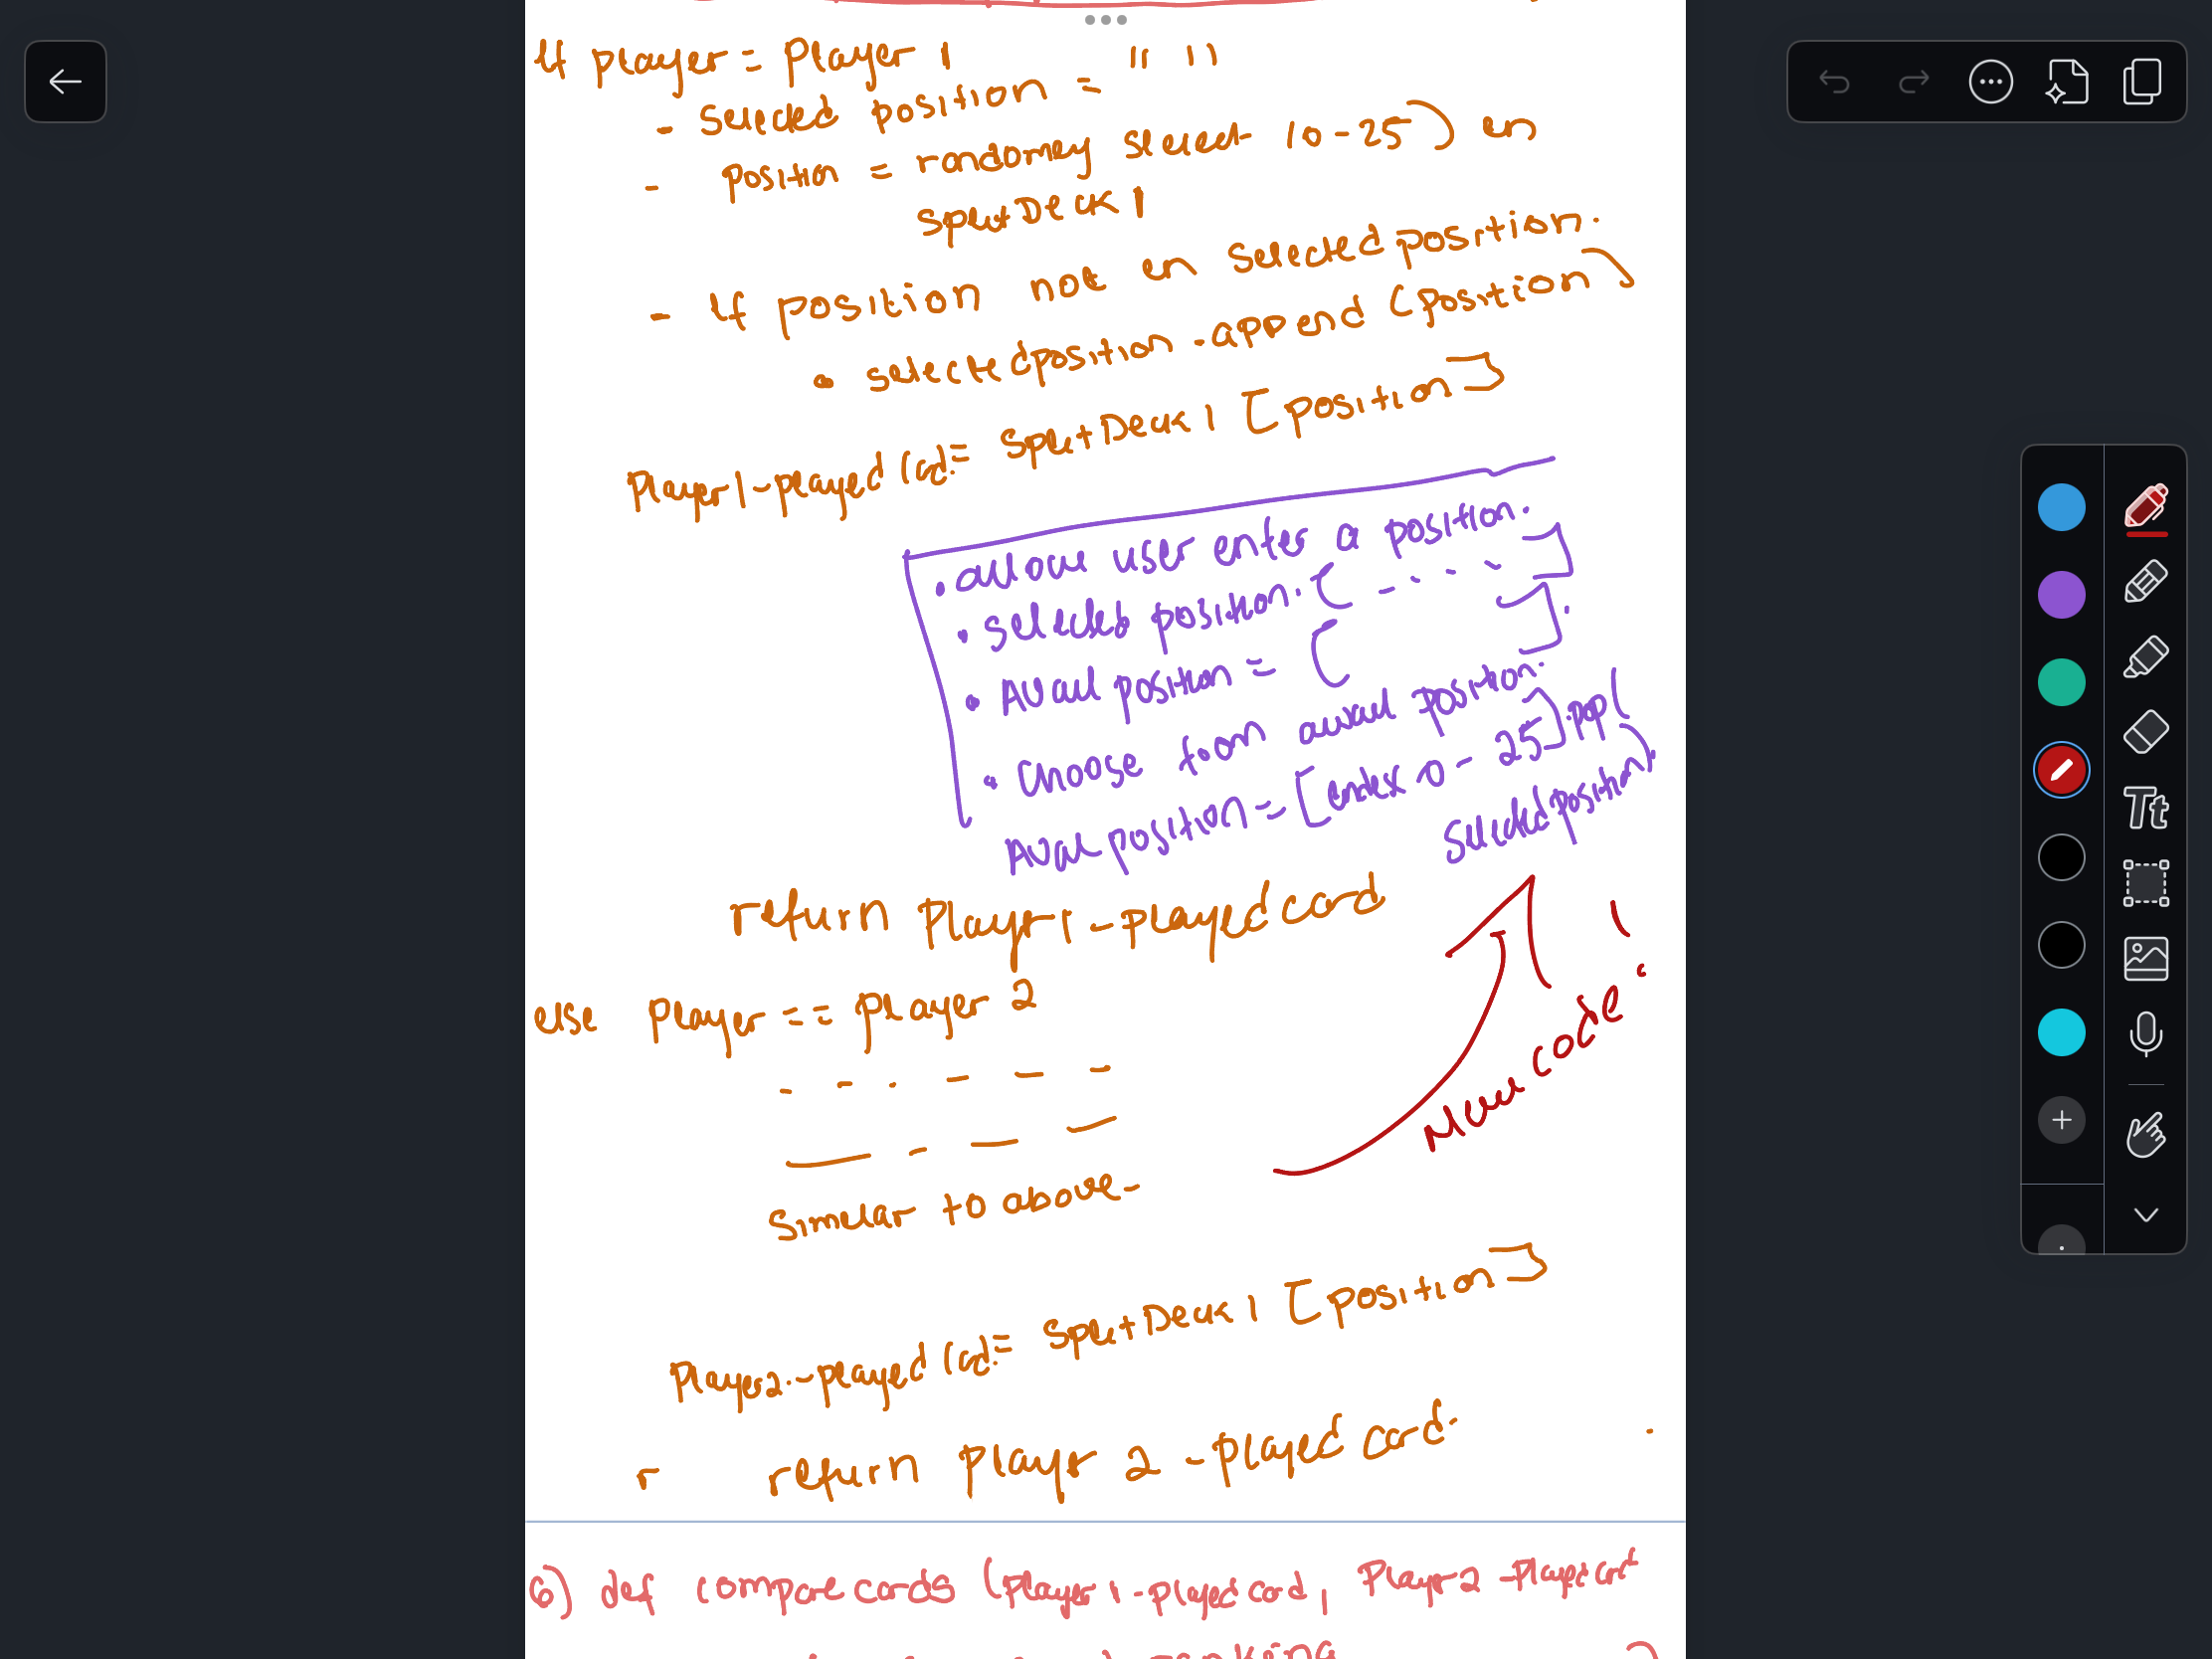 If player = Player 1
- selected position = " "
- position = randomly select 10-25) in
SplitDeck1
- If position not in selectedposition.
• selectedposition.append (position)
Player1-played Cad = SplitDeck1 [position]
• allow user enter a position.
• selected position. [ - - - - ]
• Avail position = [ ].
• Choose from avail position.
Avail position = [index 0 - 25].pop(
Selectedposition)
return Player1-playedcard
else Player == player 2
Similar to above-
New code!
Player2-played Cad = SplitDeck1 [position]
r return Player 2 -played card.
6) def compare cards (Player1-playedcard, Player2-Playedcard
ranking )
Tt